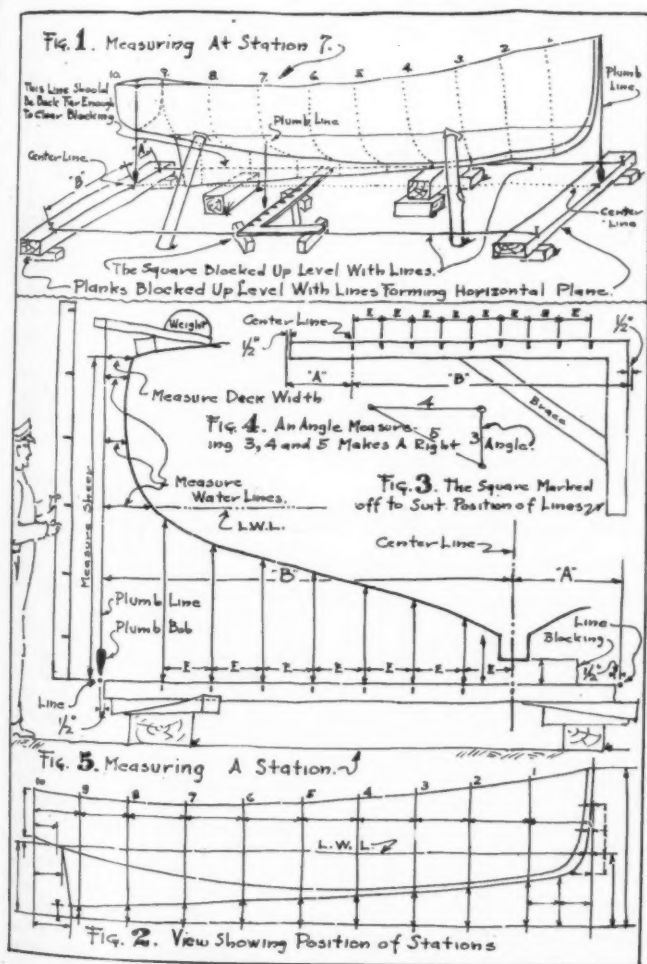 Fig. 1. Measuring At Station 7.
10 9 8 7 6 5 4 3 2 1
This Line Should
Be Back Far Enough
To Clear Blocking
Plumb Line
Plumb
Line
Center Line
"A"
"B"
Center
Line
The Square Blocked Up Level With Lines.
Planks Blocked Up Level With Lines Forming Horizontal Plane.
Weight
Center Line
1/2"
1/2"
"A"
"B"
Measure Deck Width
Brace
Fig. 4. An Angle Measur-
ing 3, 4 and 5 Makes A Right Angle.
4
5
3
Measure
Water Lines.
Fig. 3. The Square Marked
off to Suit Position of Lines
L.W.L.
Measure Sheer
Center Line
"B"
"A"
Plumb Line
Plumb Bob
Line
Blocking
Line
1/2"
1/2"
Fig. 5. Measuring A Station.
10 9 8 7 6 5 4 3 2 1
L.W.L.
Fig. 2. View Showing Position of Stations